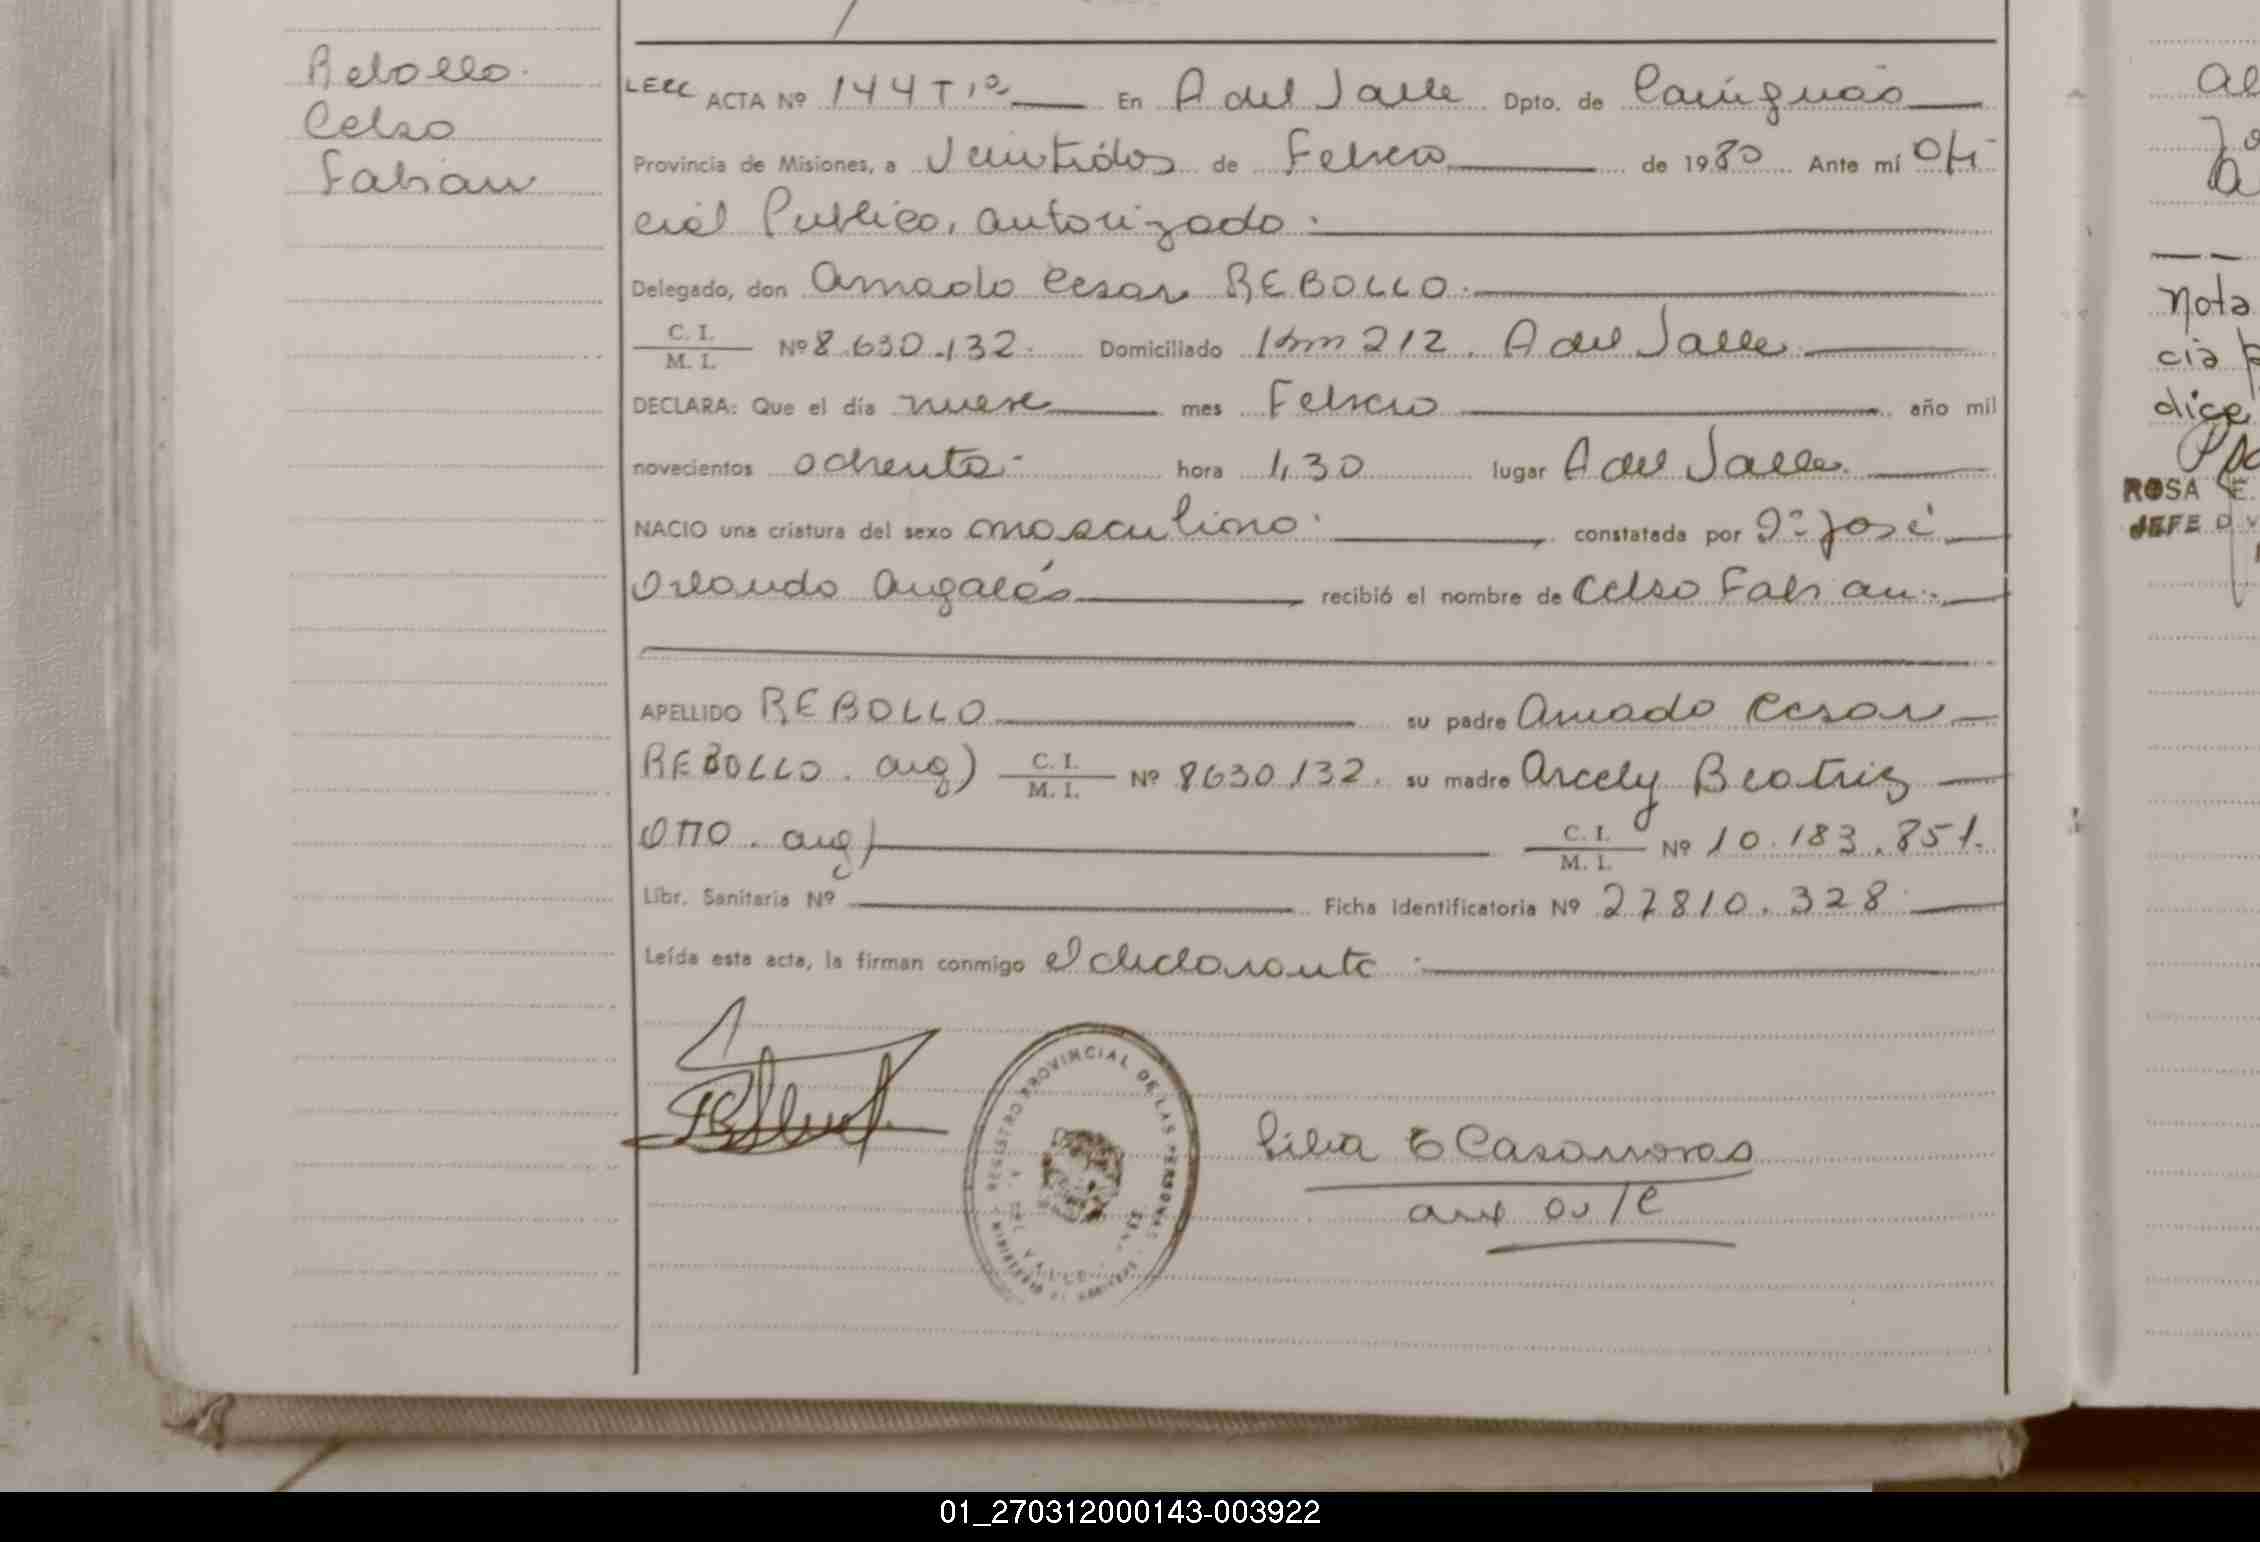 Rebollo.
Celso
Fabian
LECC ACTA Nº 144 Tº 1º En A del Valle Dpto. de Cainguás
Provincia de Misiones, a Veintidos de Febrero de 1980 Ante mí Ofi-
cial Publico, autorizado.
Delegado, don Amado Cesar REBOLLO.
C. I.
M. I. Nº 8.630.132. Domiciliado Km 212. A del Valle
DECLARA: Que el día nueve mes Febrero año mil
novecientos ochenta hora 1,30 lugar A del Valle.
NACIO una criatura del sexo masculino. constatada por Dº José
Orlando recibió el nombre de Celso Fabian.
APELLIDO REBOLLO su padre Amado Cesar
REBOLLO. arg) C. I.
M. I. Nº 8630.132. su madre Arcely Beatriz
OTTO. arg) C. I.
M. I. Nº 10.183.851.
Libr. Sanitaria Nº Ficha Identificatoria Nº 27810.328
Leída esta acta, la firman conmigo el declarante
REGISTRO PROVINCIAL DE LAS PERSONAS
A. DEL VALLE
MINISTERIO DE GOBIERNO
Casanovas
al
Nota
cia
dice
ROSA E.
JEFE D
01_270312000143-003922